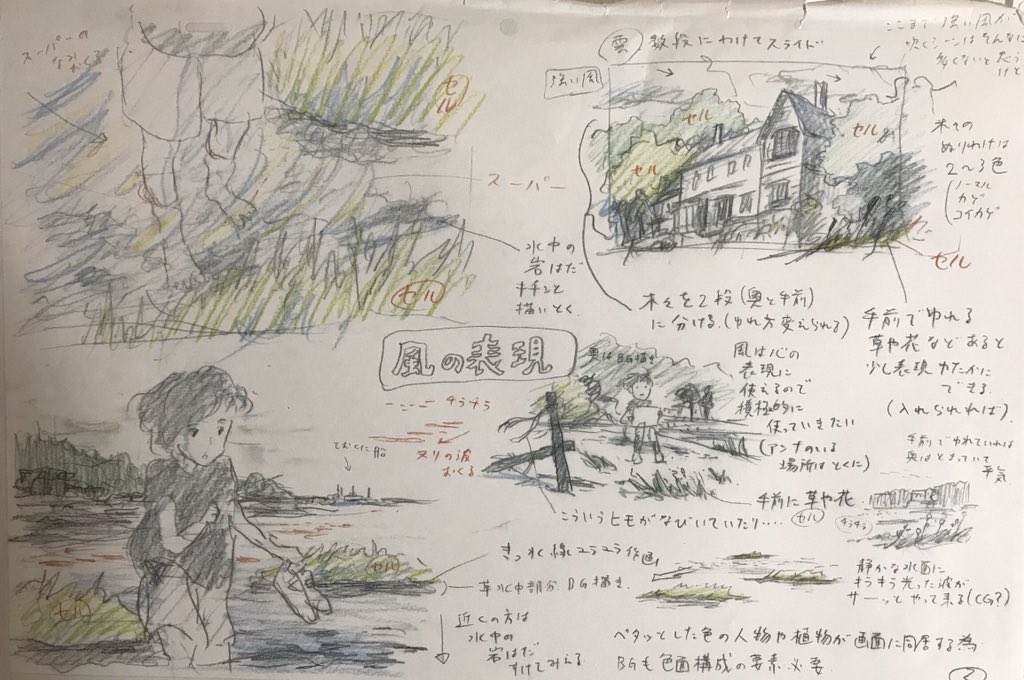 スーパーの
なみおくる
セル
スーパー
水中の
岩はだ
キチンと
描いとく
セル
雲 数段にわけてスライド
強い風
ここまで強い風が
吹くシーンはそんなに
多くないと思う
けど
セル
セル
セル
セル
木々の
ぬりわけは
2〜3色
ノーマル
カゲ
コイカゲ
木々を2段(奥と手前)
に分ける。(ゆれ方変えられる)
手前でゆれる
草や花などあると
少し表現ゆたかに
できる
(入れられれば)
風の表現
奥はBG描き
風は心の
表現に
使えるので
積極的に
使っていきたい
(アンナのいる
場所はとくに)
手前でゆれていれば
奥はとまっていて
平気
手前に草や花
セル
こういうヒモがなびいていたり‥‥
チラチラ
ヌリの波
おくる
とおくに船
セル
セル
きっ水線ユラユラ作画
草水中部分BG描き
近くの方は
水中の
岩はだ
すけてみえる
チラチラ
静かな水面に
キラキラ光った波が
サーッとやって来る(CG?)
ペタッとした色の人物や植物が画面に同居する為
BGも色面構成の要素必要
2